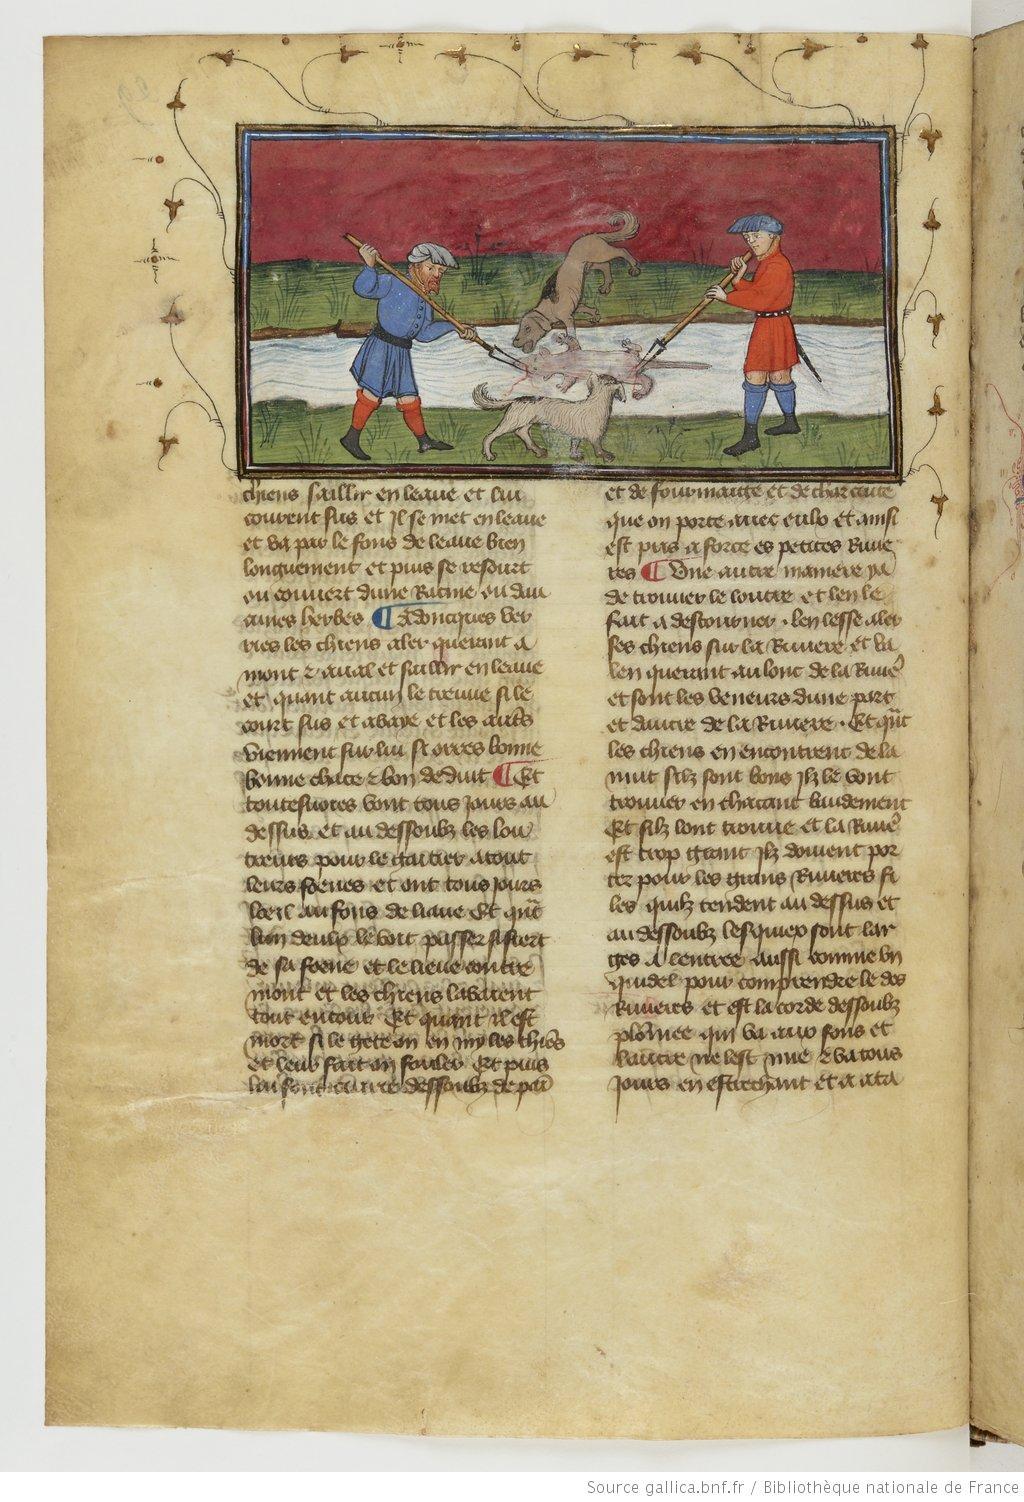 chiens saillir en leaue et lui
courent sus et Il se met en leaue
et va par le fons de leaue bien
longuement et puis se ressourt
ou couvert dune Racine ou dau
cunes herbes ¶ Adoncques ver
ries les chiens aler querant a
mont et aual et saillir en leaue
et quant aucun le treuue si le
court sus et abaye et les autres
viennent sur lui si orres bonne
bonne chace et bon deduit ¶ Et
toutesuoies vont tous Jours au
dessus et au dessoubz les lou
treurs pour le gaitier a tout
leurs foenes et ont tous Jours
loeil au fons de liaue Et quant
lun deulx le voit passer si fiert
de sa foene et le lieue contre
mont et les chiens labaient
tout entour Et quant il est
mort si le gete on en my les chiens
et leur fait on fouler Et puis
lui dessoubz de pain
et de fourmaige et de char cuite
que on porte auec eulx et ainsi
est pris a force es petites Riuie
res ¶ Une autre maniere ya
de trouuer le loutre et len le
fait a destourner . len lesse aler
ses chiens sur la Riuiere et va
len querant au lonc de la Riuiere
et sont les veneurs dune part
et dautre de la Riuiere . Et quant
les chiens en encontrent de la
nuit silz sont bons Ilz le vont
trouuer en chacant baudement
Et silz lont trouue et la Riuiere
est trop grant Ilz doiuent por
ter pour les grans Riuieres fi
les quilz tendent au dessus et
au dessoubz lesquiex sont lar
ges a lentree aussi comme un
pour comprendre le dos
Riuieres et est la corde dessoubz
plommee qui va aux fons et
lautre ne lest mie et va tous
Jours en estrechant et a ata
Source gallica.bnf.fr / Bibliothèque nationale de France